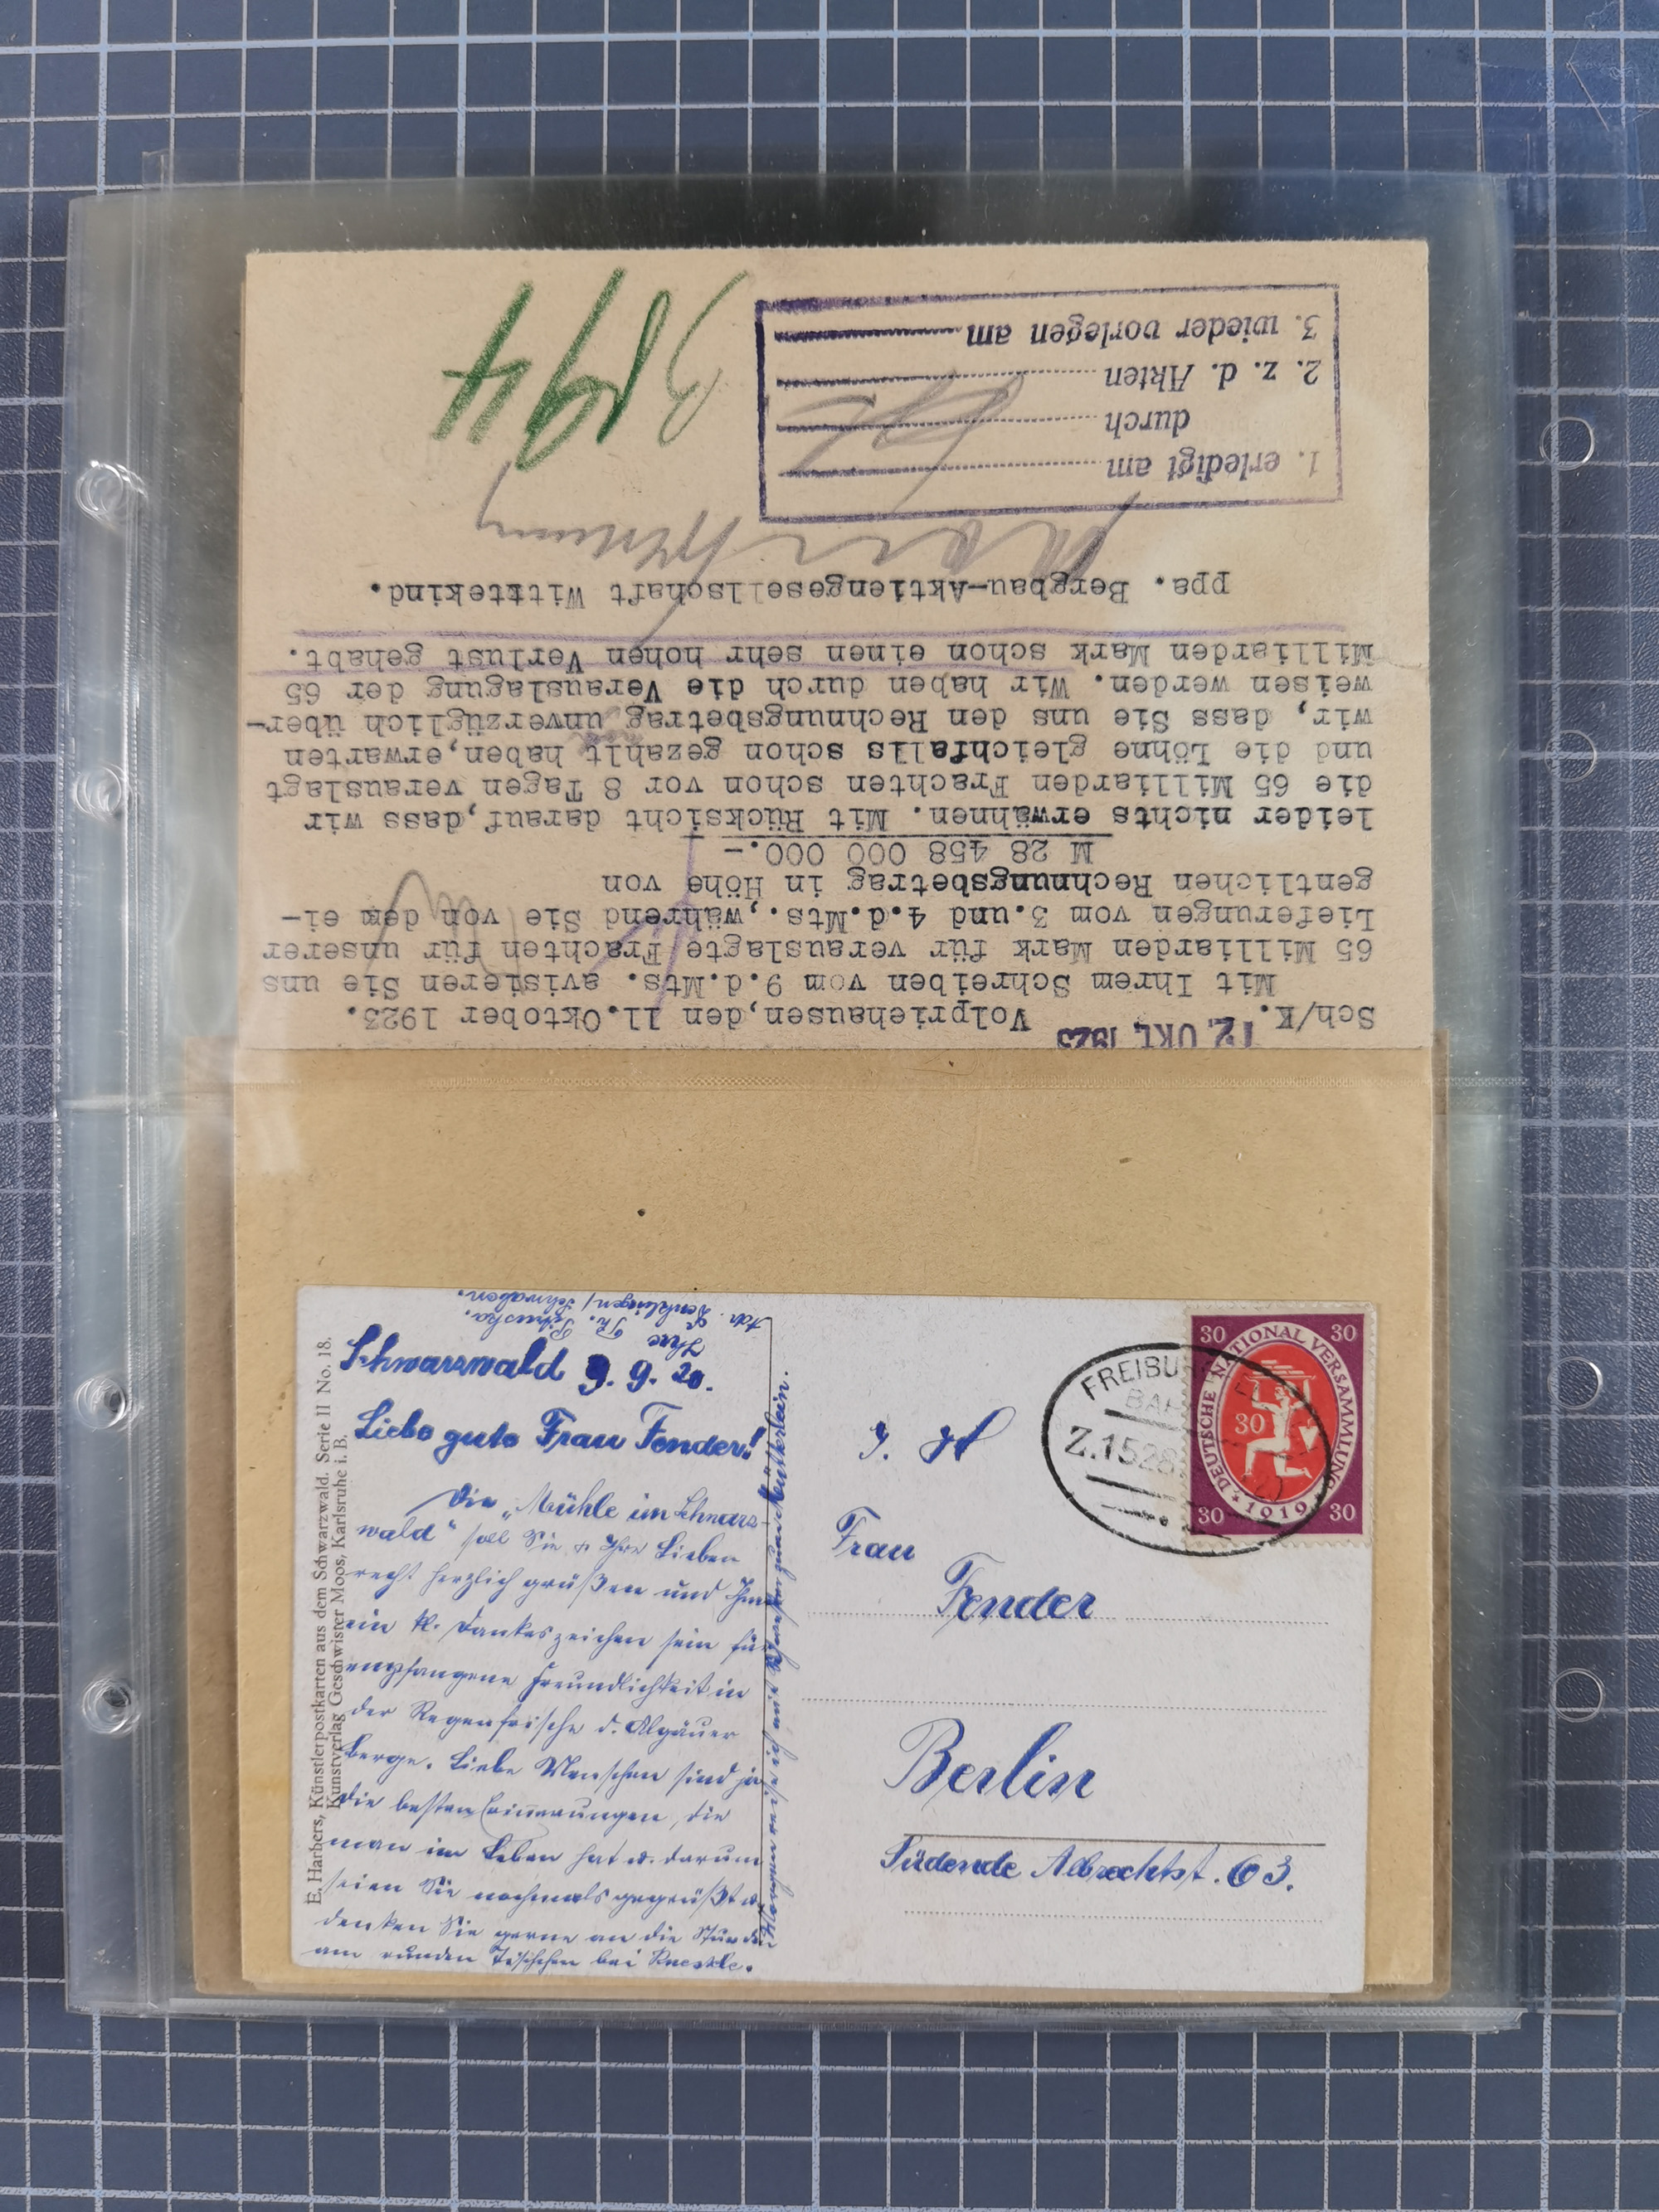 12. OKT. 1923
Sch/K. Volpriehausen, den 11.Oktober 1923.
Mit Ihrem Schreiben vom 9.d.Mts. avisieren Sie uns
65 Milliarden Mark für verauslagte Frachten für unserer
Lieferungen vom 3.und 4.d.Mts.,während Sie von dem ei-
gentlichen Rechnungsbetrag in Höhe von
M 28 458 000 000.-
leider nichts erwähnen. Mit Rücksicht darauf,dass wir
die 65 Milliarden Frachten schon vor 8 Tagen verauslagt
und die Löhne gleichfalls schon gezahlt haben,erwarten
wir, dass Sie uns den Rechnungsbetrag unverzüglich über-
weisen werden. Wir haben durch die Verauslagung der 65
Milliarden Mark schon einen sehr hohen Verlust gehabt.
ppa. Bergbau-Aktiengesellschaft Wittekind.
1. erledigt am
durch
2. z. d. Akten
3. wieder vorlegen am
3894
E. Harbers, Künstlerpostkarten aus dem Schwarzwald. Serie II No. 18.
Kunstverlag Geschwister Moos, Karlsruhe i. B.
Schwarzwald 9. 9. 20.
Liebe gute Frau Fender!
Die „Mühle im Schwarz-
wald" soll Sie u. Ihre Lieben
recht herzlich grüßen und Ihnen
ein kl. Dankeszeichen sein für
empfangene Freundlichkeit in
der Regenfrische d. Algäuer
Berge. Liebe Menschen sind ja
die besten Erinnerungen, die
man im Leben hat u. darum
seien Sie nochmals gegrüßt u.
denken Sie gerne an die Stunden
am runden Tischchen bei
Morgen reise ich mit zum Mütterlein.
Ihre
Th.
Adr. Denklingen/Schwaben.
Frau
Fender
Berlin
Südende Albrechtst. 63.
FREIBU
BAH
Z.1528
DEUTSCHE NATIONAL VERSAMMLUNG
1919
30
30
30
30
30